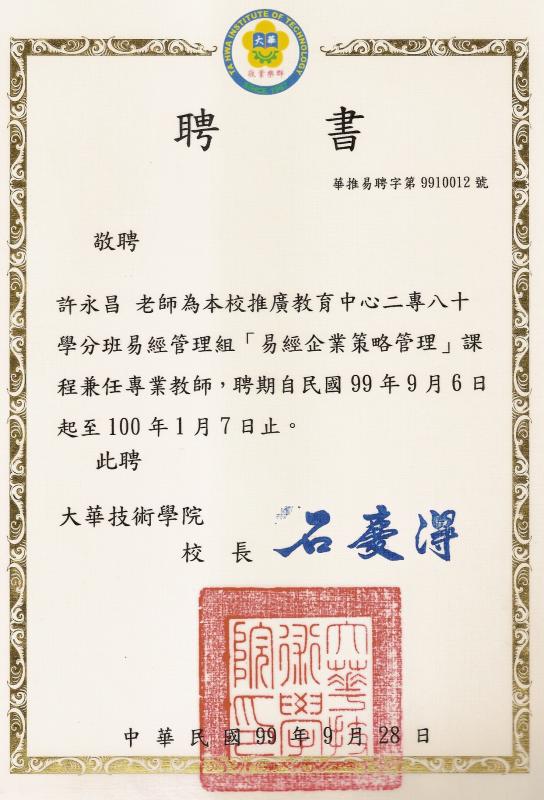 TA HWA INSTITUTE OF TECHNOLOGY
大華
敬業樂群
聘 書
華推易聘字第 9910012 號
敬聘
許永昌 老師為本校推廣教育中心二專八十
學分班易經管理組「易經企業策略管理」課
程兼任專業教師，聘期自民國 99 年 9 月 6 日
起至 100 年 1 月 7 日止。
此聘
大華技術學院
校 長 石慶得
大華技術學院印
中 華 民 國 99 年 9 月 28 日